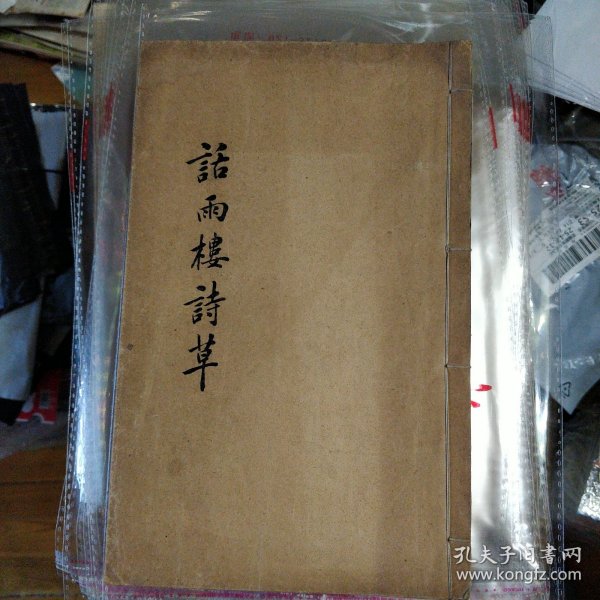 話雨樓詩草
孔夫子旧書网
www.kongfz.com